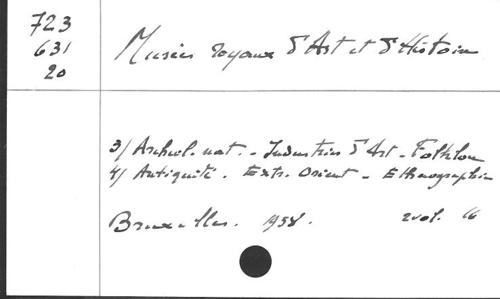 723
631
20
Musées royaux d'Art et d'Histoire
3/ Archéol. nat. - Industries d'Art - Folklore
4/ Antiquité. Extr. Orient - Ethnographie
Bruxelles. 1958. 2 vol. 16